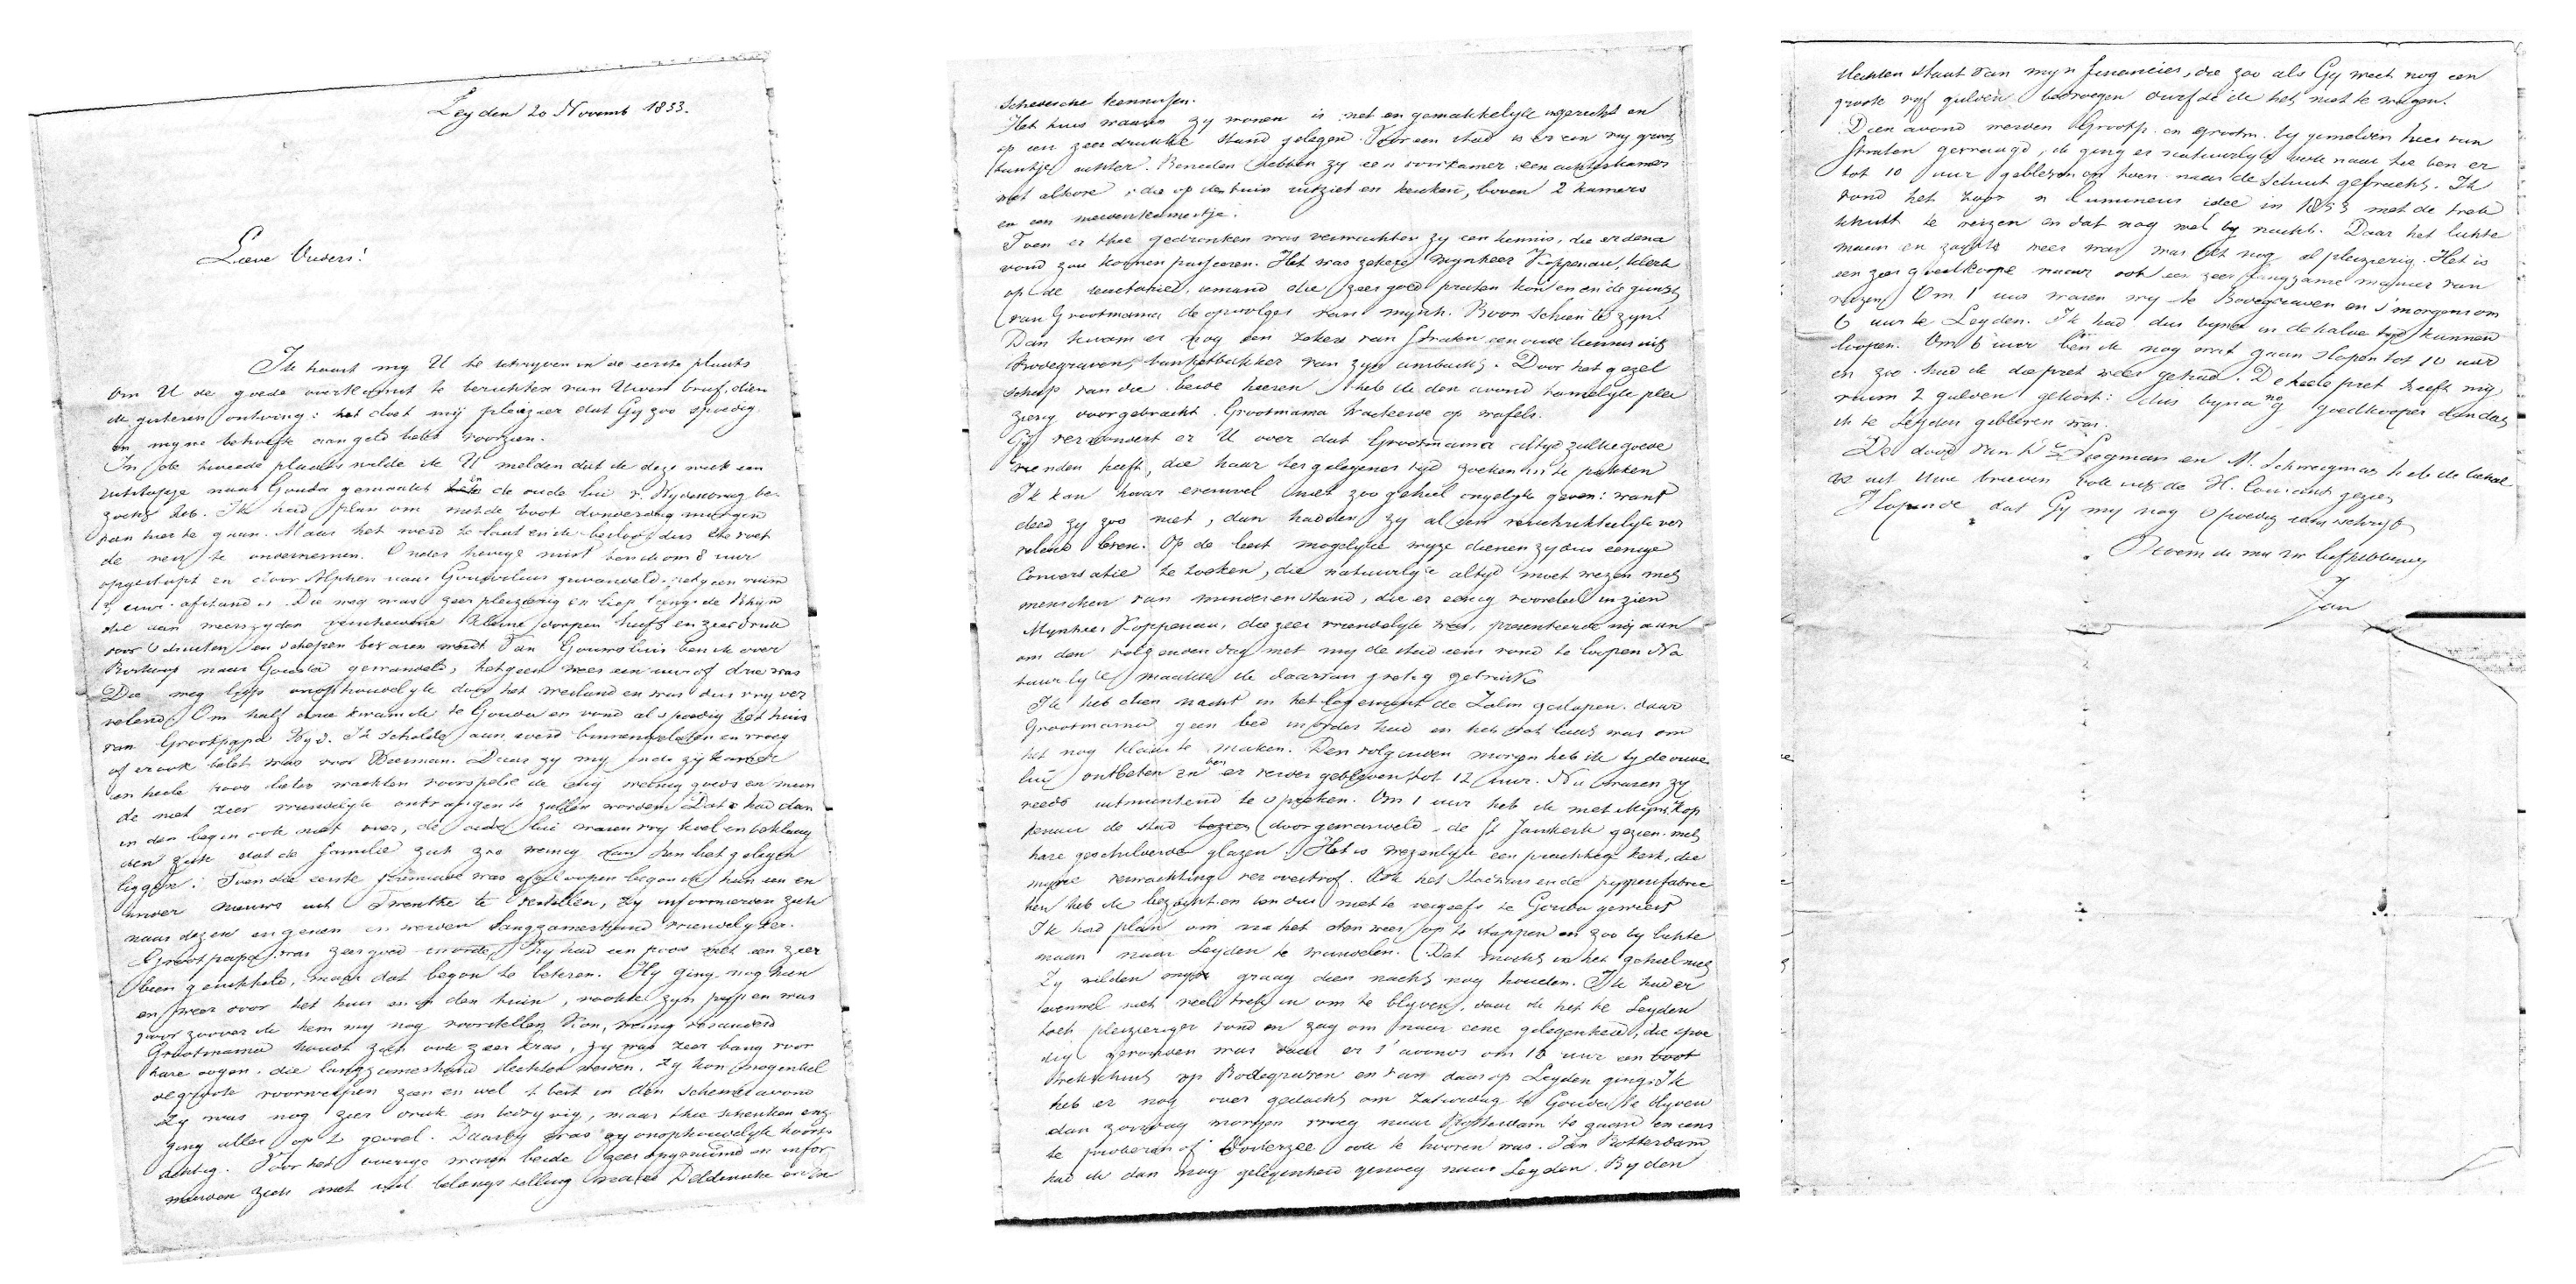 Leyden 20 Novemb 1853.
Lieve Ouders!
Ik haast my U te schryven in de eerste plaats
om U de goede overkomst te berichten van Uwen brief, dien
ik gisteren ontving: het doet mij pleizier dat Gy zoo spoedig
in myne behoefte aan geld hebt voorzien.
In de tweede plaats wilde ik U melden dat ik deze week een
uitstapje naar Gouda gemaakt en de oude lui v. Nydenbrug be-
zocht heb. Ik had plan om met de boot donderdag morgen
van hier te gaan. Maar het werd te laat en ik besloot dus te voet
de reis te ondernemen. Onder hevige mist ben ik om 8 uur
opgestapt en door Alphen naar Gouwsluis gewandeld, hetgeen ruim
uur afstand is. Die weg was zeer pleizierig en liep langs de Rhyn
die aan weerszyden verscheidene kleine dorpen heeft en zeer druk
door schuiten en schepen bevaren wordt. Van Gouwsluis ben ik over
Boskoop naar Gouda gewandeld, hetgeen weer een uur of drie was
Die weg liep onophoudelyk door het weiland en was dus vry ver
velend. Om half drie kwam ik te Gouda en vond al spoedig het huis
van Grootpapa Nyd. Ik schelde aan, werd binnengelaten en vroeg
of er ook belet was voor Deerman. Daar zy my in de zykamer
een heele poos lieten wachten voorspelde ik my weinig goeds en meen
de niet zeer vriendelyk ontvangen te zullen worden. Dat had dan
in den begin ook niet over, de oude lui waren vry koel en beklaag
den zich dat de familie zich zoo weinig aan hen het gelegen
liggen. Toen die eerste was afgeloopen begon ik hun een en
ander nieuws uit Drenthe te vertellen, zy informeerden zich
naar dezen en genen en werden langzamerhand vriendelyker.
Grootpapa was zeer goed in orde, Hy had een poos met een zeer
been gesukkeld, maar dat begon te beteren. Hy ging nog heen
en weer door het huis en in den tuin, rookte zyn pypje en was
voor zoover ik hem my nog voorstellen kon, weinig veranderd
Grootmama houdt zich ook zeer kras, zy was zeer bang voor
hare oogen, die langzamerhand slechter werden. Zy kon nog enkel
de groote voorwerpen zien en wel 't best in den schemeravond
Zy was nog zeer druk en bedryvig, maar thee schenken enz.
ging alles op 't gevoel. Daarby was zy onophoudelyk hoorn
achtig. Voor het overige waren beide zeer opgeruimd en infor-
meerden zich met veel belangstelling naar de Deldensche en
schesche kennissen.
Het huis waarin zy wonen is net en gemakkelyk ingericht en
op een zeer drukke stand gelegen. Voor een stad is er een vry groot
tuintje achter. Beneden hebben zy een voorkamer, een achterkamer
met alkove, die op den tuin uitziet en keuken, boven 2 kamers
en een meidenkamertje.
Toen er thee gedronken was verwachtten zy een kennis, die er den a
vond zou komen passeeren. Het was zekere mynheer Koppenau, klerk
op de secretarie, iemand die zeer goed praten kon en in de gunst
van Grootmama de opvolger van mynh. Boon schien te zyn.
Dan kwam er nog een zekere van Straten een oude kennis uit
Bodegraven, banketbakker van zyn ambacht. Door het gezel
schap van die beide heeren heb ik den avond tamelyk plei
zierig doorgebracht. Grootmama trakteerde op wafels.
Gy verwondert er U over dat Grootmama altyd zulke goede
vrienden heeft, die haar ter gelegener tyd zoeken in te pakken
Ik kan haar evenwel niet zoo geheel ongelyk geven: want
deed zy zoo niet, dan hadden zy al een verschrikkelyk ver
velend leven. Op de best mogelyke wyze dienen zy dus eenige
Conversatie te zoeken, die natuurlyk altyd moet wezen met
menschen van minderen stand, die er eenig voordeel in zien
Mynheer Koppenau, die zeer vriendelyk was, presenteerde my aan
om den volgenden dag met my de stad eens rond te loopen. Na
tuurlyk maakte ik daarvan gretig gebruik
Ik heb dien nacht in het logement de Zalm geslapen, daar
Grootmama geen bed in orde had en het ook laat was om
het nog klaar te maken. Den volgenden morgen heb ik by de oude
lui ontbeten en ben er verder gebleven tot 12 uur. Nu waren zy
reeds uitmuntend te spreken. Om 1 uur heb ik met Mynh. Kop
penau de stad doorgewandeld, de St Janskerk gezien met
hare geschilderde glazen. Het is wezenlyk een prachtige kerk, die
myne verwachting ver overtrof. Ook het Stadhuis en de pypenfabrie
ken heb ik bezocht en ben dus niet te vergeefs te Gouda geweest
Ik had plan om na het eten weer op te stappen en zoo by lichte
maan naar Leyden te wandelen. Dat mocht in het geheel niet
Zy wilden my graag dien nacht nog houden. Ik had er
evenwel niet veel trek in om te blyven, daar ik het te Leyden
toch pleizieriger vond en zag om naar eene gelegenheid, die spoe
dig gevonden was daar er 's avonds om 10 uur een boot
trekschuit op Bodegraven en van daar op Leyden ging. Ik
heb er nog over gedacht om Zaturdag te Gouda te blyven
dan zondag morgen vroeg naar Rotterdam te gaan en eens
te probeeren of Oosterzee ook te hooren was. Van Rotterdam
had ik dan nog gelegenheid genoeg naar Leyden. By den
slechten staat van myn financien, die zoo als Gy weet nog een
groote vyf gulden bedroegen durfde ik het niet te wagen.
Dien avond werden Grootp. en Grootm. by gemelden heer van
Straten gevraagd, ik ging er natuurlyk ook naar toe ben er
tot 10 uur gebleven en toen naar de schuit gebracht. Ik
vond het zoo'n lumineus idee in 1853 met de trek
schuit te reizen en dat nog wel by nacht. Daar het lichte
maan en zacht weer was, was het nog al pleizierig. Het is
een zeer goedkoope maar ook een zeer langzame manier van
reizen. Om 1 uur waren wy te Bodegraven en 's morgens om
6 uur te Leyden. Ik had dus byna in de halve tyd kunnen
loopen. Om 6 uur ben ik nog wat gaan slapen tot 10 uur
en zoo had ik de pret weer gehad. De heele pret heeft my
ruim 2 gulden gekost: dus byna nog goedkooper dan dat
ik te Leyden gebleven was.
De dood van Siegman en M. Schweigman heb ik behal
ve uit Uwe brieven ook uit de H. Courant gezien
Hopende dat Gy my nog spoedig eens schryft
Noem ik my Uw liefhebbende
Jan